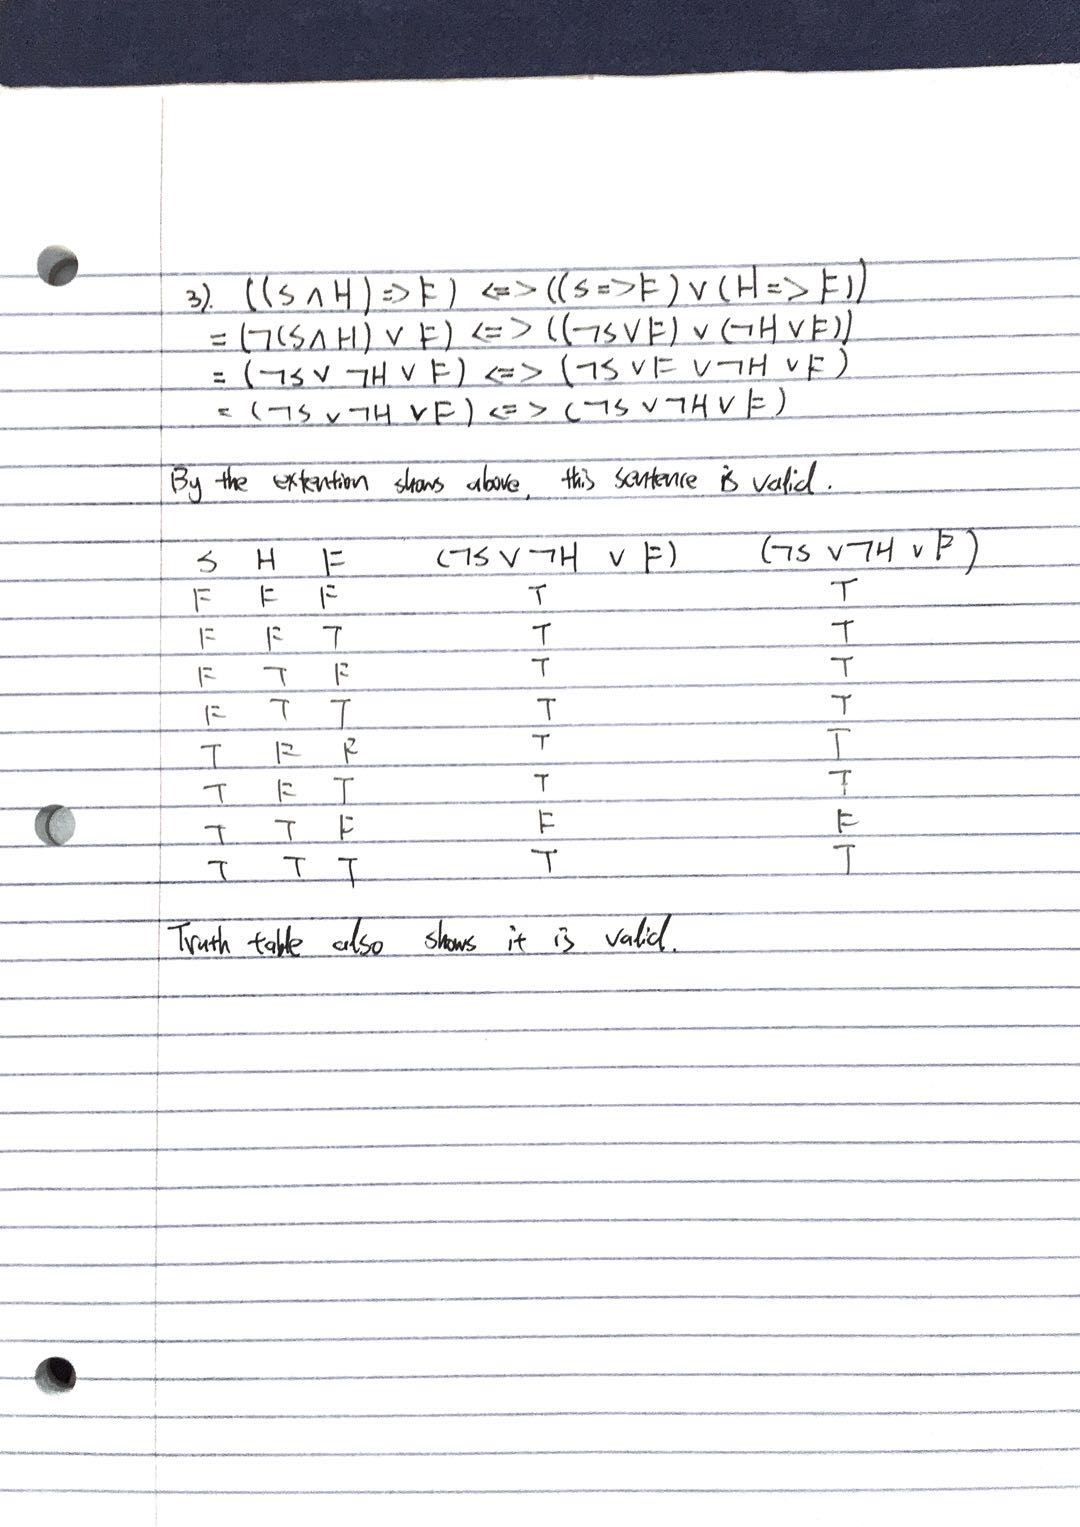 3). ((S ∧ H) => F) <=> ((S => F) ∨ (H => F))
= (¬(S ∧ H) ∨ F) <=> ((¬S ∨ F) ∨ (¬H ∨ F))
= (¬S ∨ ¬H ∨ F) <=> (¬S ∨ F ∨ ¬H ∨ F)
= (¬S ∨ ¬H ∨ F) <=> (¬S ∨ ¬H ∨ F)
By the extention shows above, this sentence is valid.
S H F (¬S ∨ ¬H ∨ F) (¬S ∨ ¬H ∨ F)
F F F T T
F F T T T
F T F T T
F T T T T
T F F T T
T F T T T
T T F F F
T T T T T
Truth table also shows it is valid.